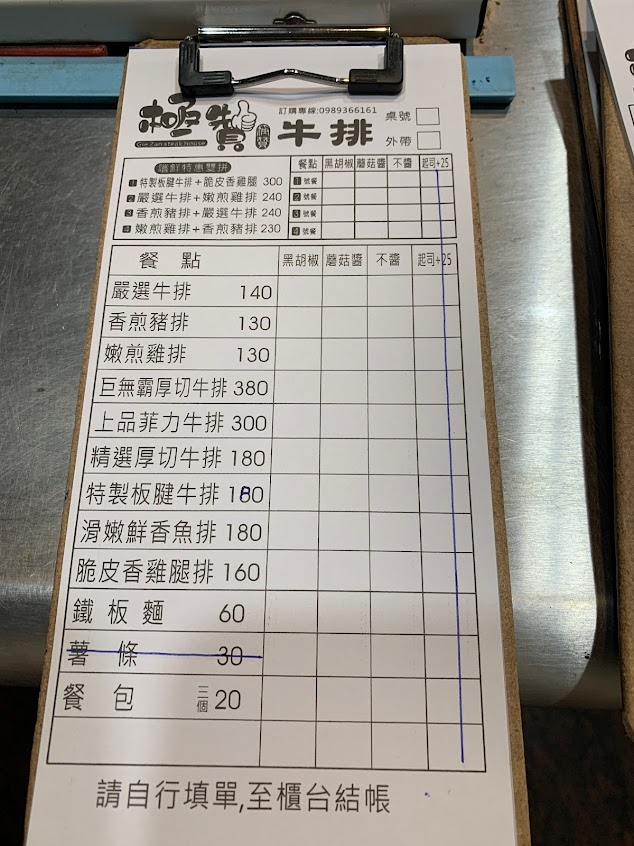 極贊 牛排
Gie Zan steak house
訂購專線:0989366161
桌號
外帶
嚐鮮特惠雙拼
餐點 黑胡椒 蘑菇醬 不醬 起司+25
1 特製板腱牛排+脆皮香雞腿 300 1 號餐
2 嚴選牛排+嫩煎雞排 240 2 號餐
3 香煎豬排+嚴選牛排 240 3 號餐
4 嫩煎雞排+香煎豬排 230 4 號餐
餐 點 黑胡椒 蘑菇醬 不醬 起司+25
嚴選牛排 140
香煎豬排 130
嫩煎雞排 130
巨無霸厚切牛排 380
上品菲力牛排 300
精選厚切牛排 180
特製板腱牛排 180
滑嫩鮮香魚排 180
脆皮香雞腿排 160
鐵板麵 60
薯條 30
餐包 三個 20
請自行填單,至櫃台結帳